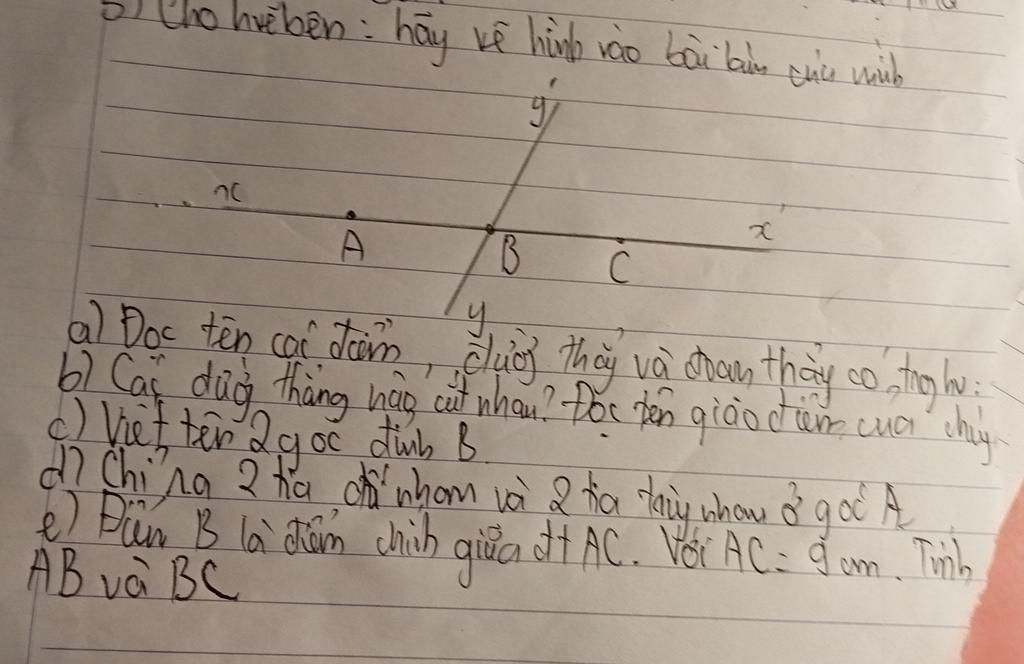 5) Cho hvẽ bên : hãy vẽ hình vào bài làm của mình
y'
x
x'
A
B
C
y
a) Đọc tên các điểm, đường thẳng và đoạn thẳng có trong hv:
b) Các đường thẳng nào cắt nhau? Đọc tên giao điểm của chúng
c) Viết tên 2 góc đỉnh B
d) Chỉ ra 2 tia đối nhau và 2 tia trùng nhau ở gốc A
e) Điểm B là điểm chính giữa đt AC. Với AC = 9 cm. Tính
AB và BC